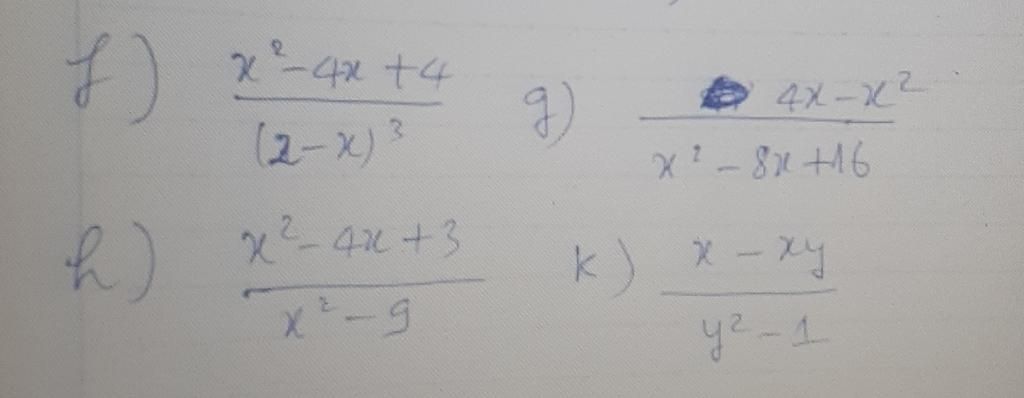 f) (x² - 4x + 4) / (2 - x)³ g) (4x - x²) / (x² - 8x + 16)
h) (x² - 4x + 3) / (x² - 9) k) (x - xy) / (y² - 1)